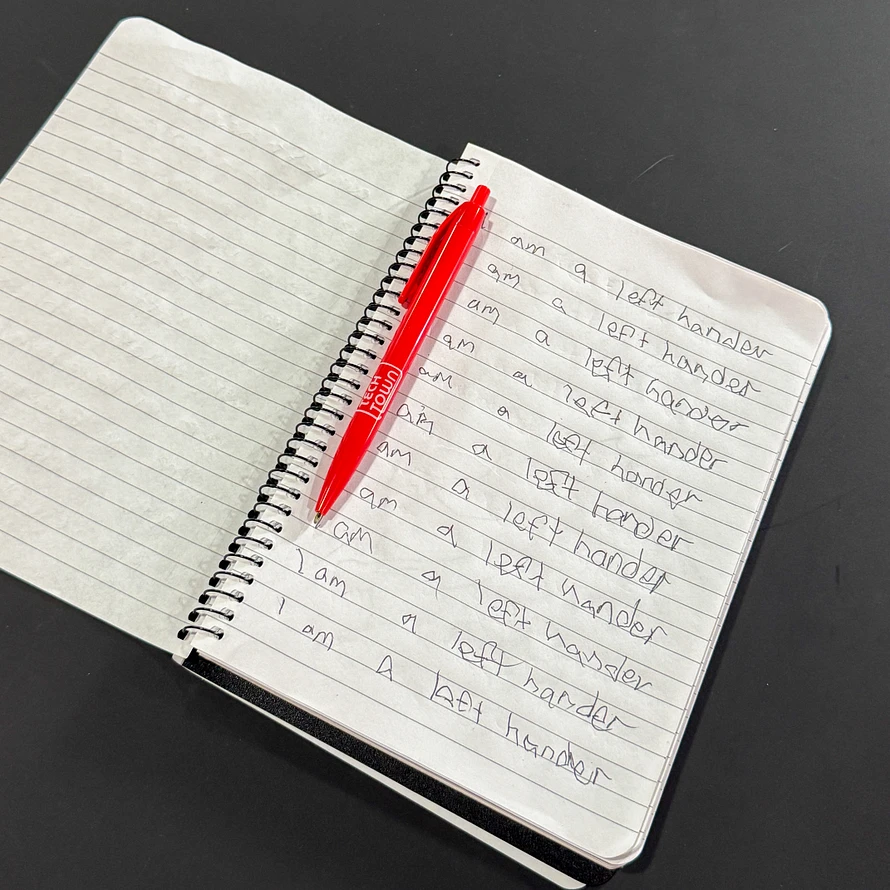 I am a left hander
am a left hander
am a left hander
am a left hander
am a left hander
am a left hander
am a left hander
am a left hander
am a left hander
I am a left hander
I am a left hander
TECH
TOWN